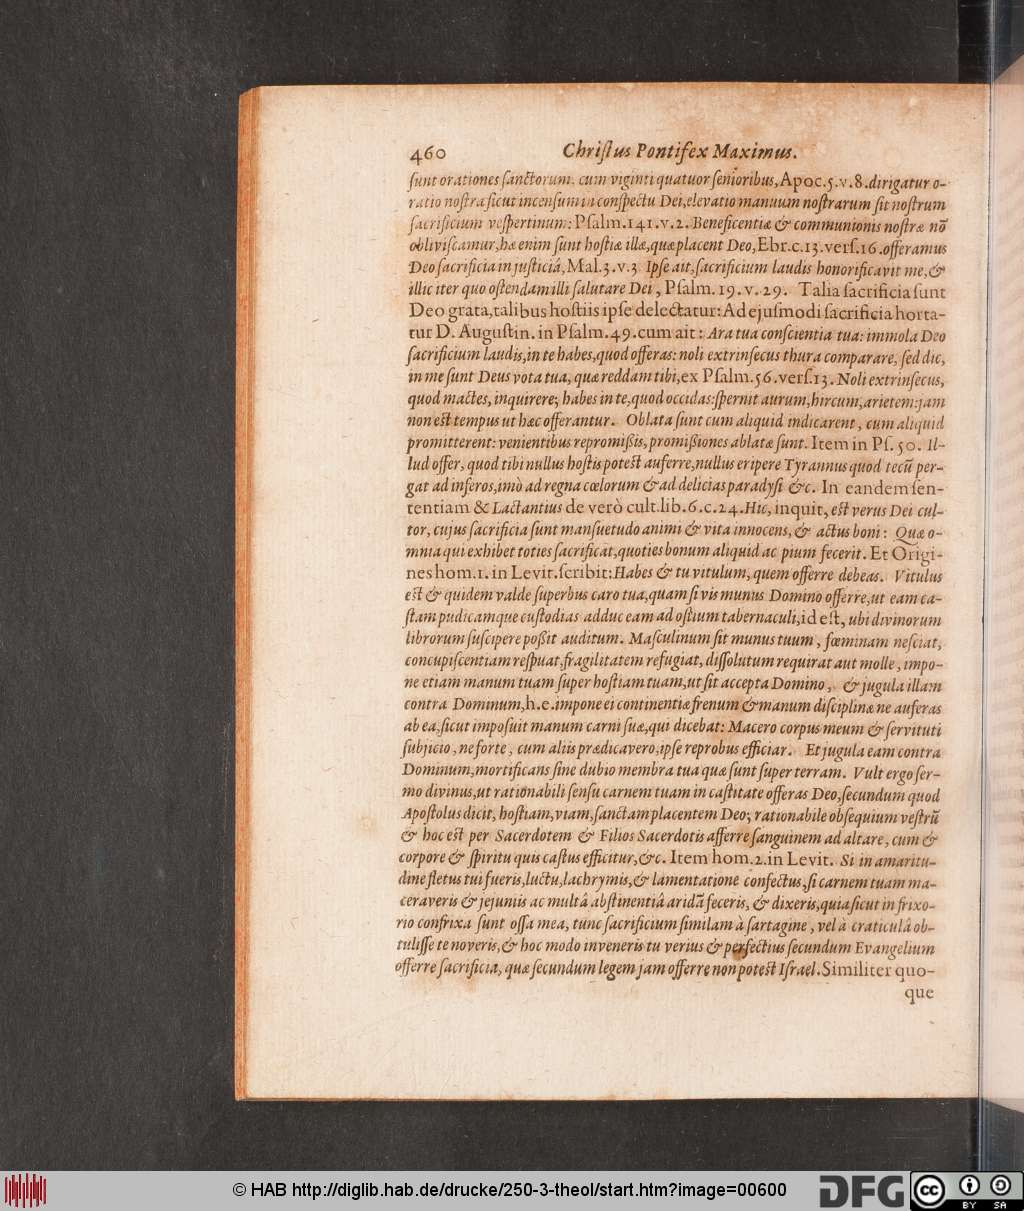 460 Chriſtus Pontifex Maximus.
ſunt orationes ſanctorum. cum viginti quatuor ſenioribus, Apoc.5.v.8.dirigatur o-
ratio noſtra ſicut incenſum in conſpectu Dei,elevatio manuum noſtrarum ſit noſtrum
ſacrificium veſpertinum: Pſalm.141.v.2. Beneficentiæ & communionis noſtræ nō
obliviſcamur,hæ enim ſunt hoſtiæ illæ,quæ placent Deo,Ebr.c.13.verſ.16.offeramus
Deo ſacrificia in juſticiâ,Mal.3.v.3 Ipſe ait,ſacrificium laudis honorificavit me,&
illic iter quo oſtendam illi ſalutare Dei, Pſalm.19.v.29. Talia ſacrificia ſunt
Deo grata,talibus hoſtiis ipſe delectatur:Ad ejuſmodi ſacrificia horta-
tur D. Auguſtin. in Pſalm.49.cum ait: Ara tua conſcientia tua: immola Deo
ſacrificium laudis,in te habes,quod offeras: noli extrinſecus thura comparare, ſed dic,
in me ſunt Deus vota tua, quæ reddam tibi,ex Pſalm.56.verſ.13. Noli extrinſecus,
quod mactes, inquirere; habes in te,quod occidas:ſpernit aurum,hircum,arietem:jam
non eſt tempus ut hæc offerantur. Oblata ſunt cum aliquid indicarent, cum aliquid
promitterent: venientibus repromiſſis,promiſſiones ablatæ ſunt. Item in Pſ.50. Il-
lud offer, quod tibi nullus hoſtis poteſt auferre,nullus eripere Tyrannus quod tecū per-
gat ad inferos,imò ad regna cœlorum & ad delicias paradyſi &c. In eandem ſen-
tentiam & Lactantius de verò cult.lib.6.c.24.Hic, inquit, eſt verus Dei cul-
tor, cujus ſacrificia ſunt manſuetudo animi & vita innocens, & actus boni: Quæ o-
mnia qui exhibet toties ſacrificat,quoties bonum aliquid ac pium fecerit. Et Origi-
nes hom.1. in Levit.ſcribit:Habes & tu vitulum, quem offerre debeas. Vitulus
eſt & quidem valde ſuperbus caro tua,quam ſi vis munus Domino offerre,ut eam ca-
ſtam pudicamque cuſtodias adduc eam ad oſtium tabernaculi,id eſt, ubi divinorum
librorum ſuſcipere poſſit auditum. Maſculinum ſit munus tuum, fœminam neſciat,
concupiſcentiam reſpuat,fragilitatem refugiat, diſſolutum requirat aut molle, impo-
ne etiam manum tuam ſuper hoſtiam tuam,ut ſit accepta Domino, & jugula illam
contra Dominum,h.e.impone ei continentiæ frenum & manum diſciplinæ ne auferas
ab ea,ſicut impoſuit manum carni ſuæ,qui dicebat: Macero corpus meum & ſervituti
ſubjicio, ne forte, cum aliis prædicavero,ipſe reprobus efficiar. Et jugula eam contra
Dominum,mortificans ſine dubio membra tua quæ ſunt ſuper terram. Vult ergo ſer-
mo divinus,ut rationabili ſenſu carnem tuam in caſtitate offeras Deo,ſecundum quod
Apoſtolus dicit, hoſtiam,viam,ſanctam placentem Deo; rationabile obſequium veſtrū
& hoc eſt per Sacerdotem & Filios Sacerdotis afferre ſanguinem ad altare, cum &
corpore & ſpiritu quis caſtus efficitur,&c. Item hom.2.in Levit. Si in amaritu-
dine fletus tui fueris,luctu,lachrymis,& lamentatione confectus,ſi carnem tuam ma-
ceraveris & jejuniis ac multâ abſtinentiâ aridā feceris, & dixeris,quia ſicut in frixo-
rio confrixa ſunt oſſa mea, tunc ſacrificium ſimilam à ſartagine, vel à craticulâ ob-
tuliſſe te noveris,& hoc modo inveneris tu verius & perfectius ſecundum Evangelium
offerre ſacrificia, quæ ſecundum legem jam offerre non poteſt Iſrael.Similiter quo-
que
© HAB http://diglib.hab.de/drucke/250-3-theol/start.htm?image=00600
DFG
cc BY SA